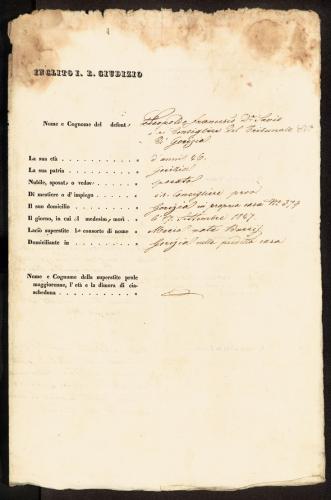 4
INCLITO I. R. GIUDIZIO
Nome e Cognome del defunto Francesco Dr. Savio
I. R. Consigliere del Tribunale
di Gorizia
La sua età d'anni 66.
La sua patria Gorizia
Nubile, sposato o vedovo sposato
Di mestiere o d'impiego Consigliere
Il suo domicilio Gorizia in propria casa No. 377
Il giorno, in cui al medesimo morì 7. Settembre 1847.
Lasciò superstite la consorte di nome Maria nata
Domiciliante in Gorizia nella predetta casa
Nome e Cognome della superstite prole
maggiorenne, l'età e la dimora di cia-
scheduna